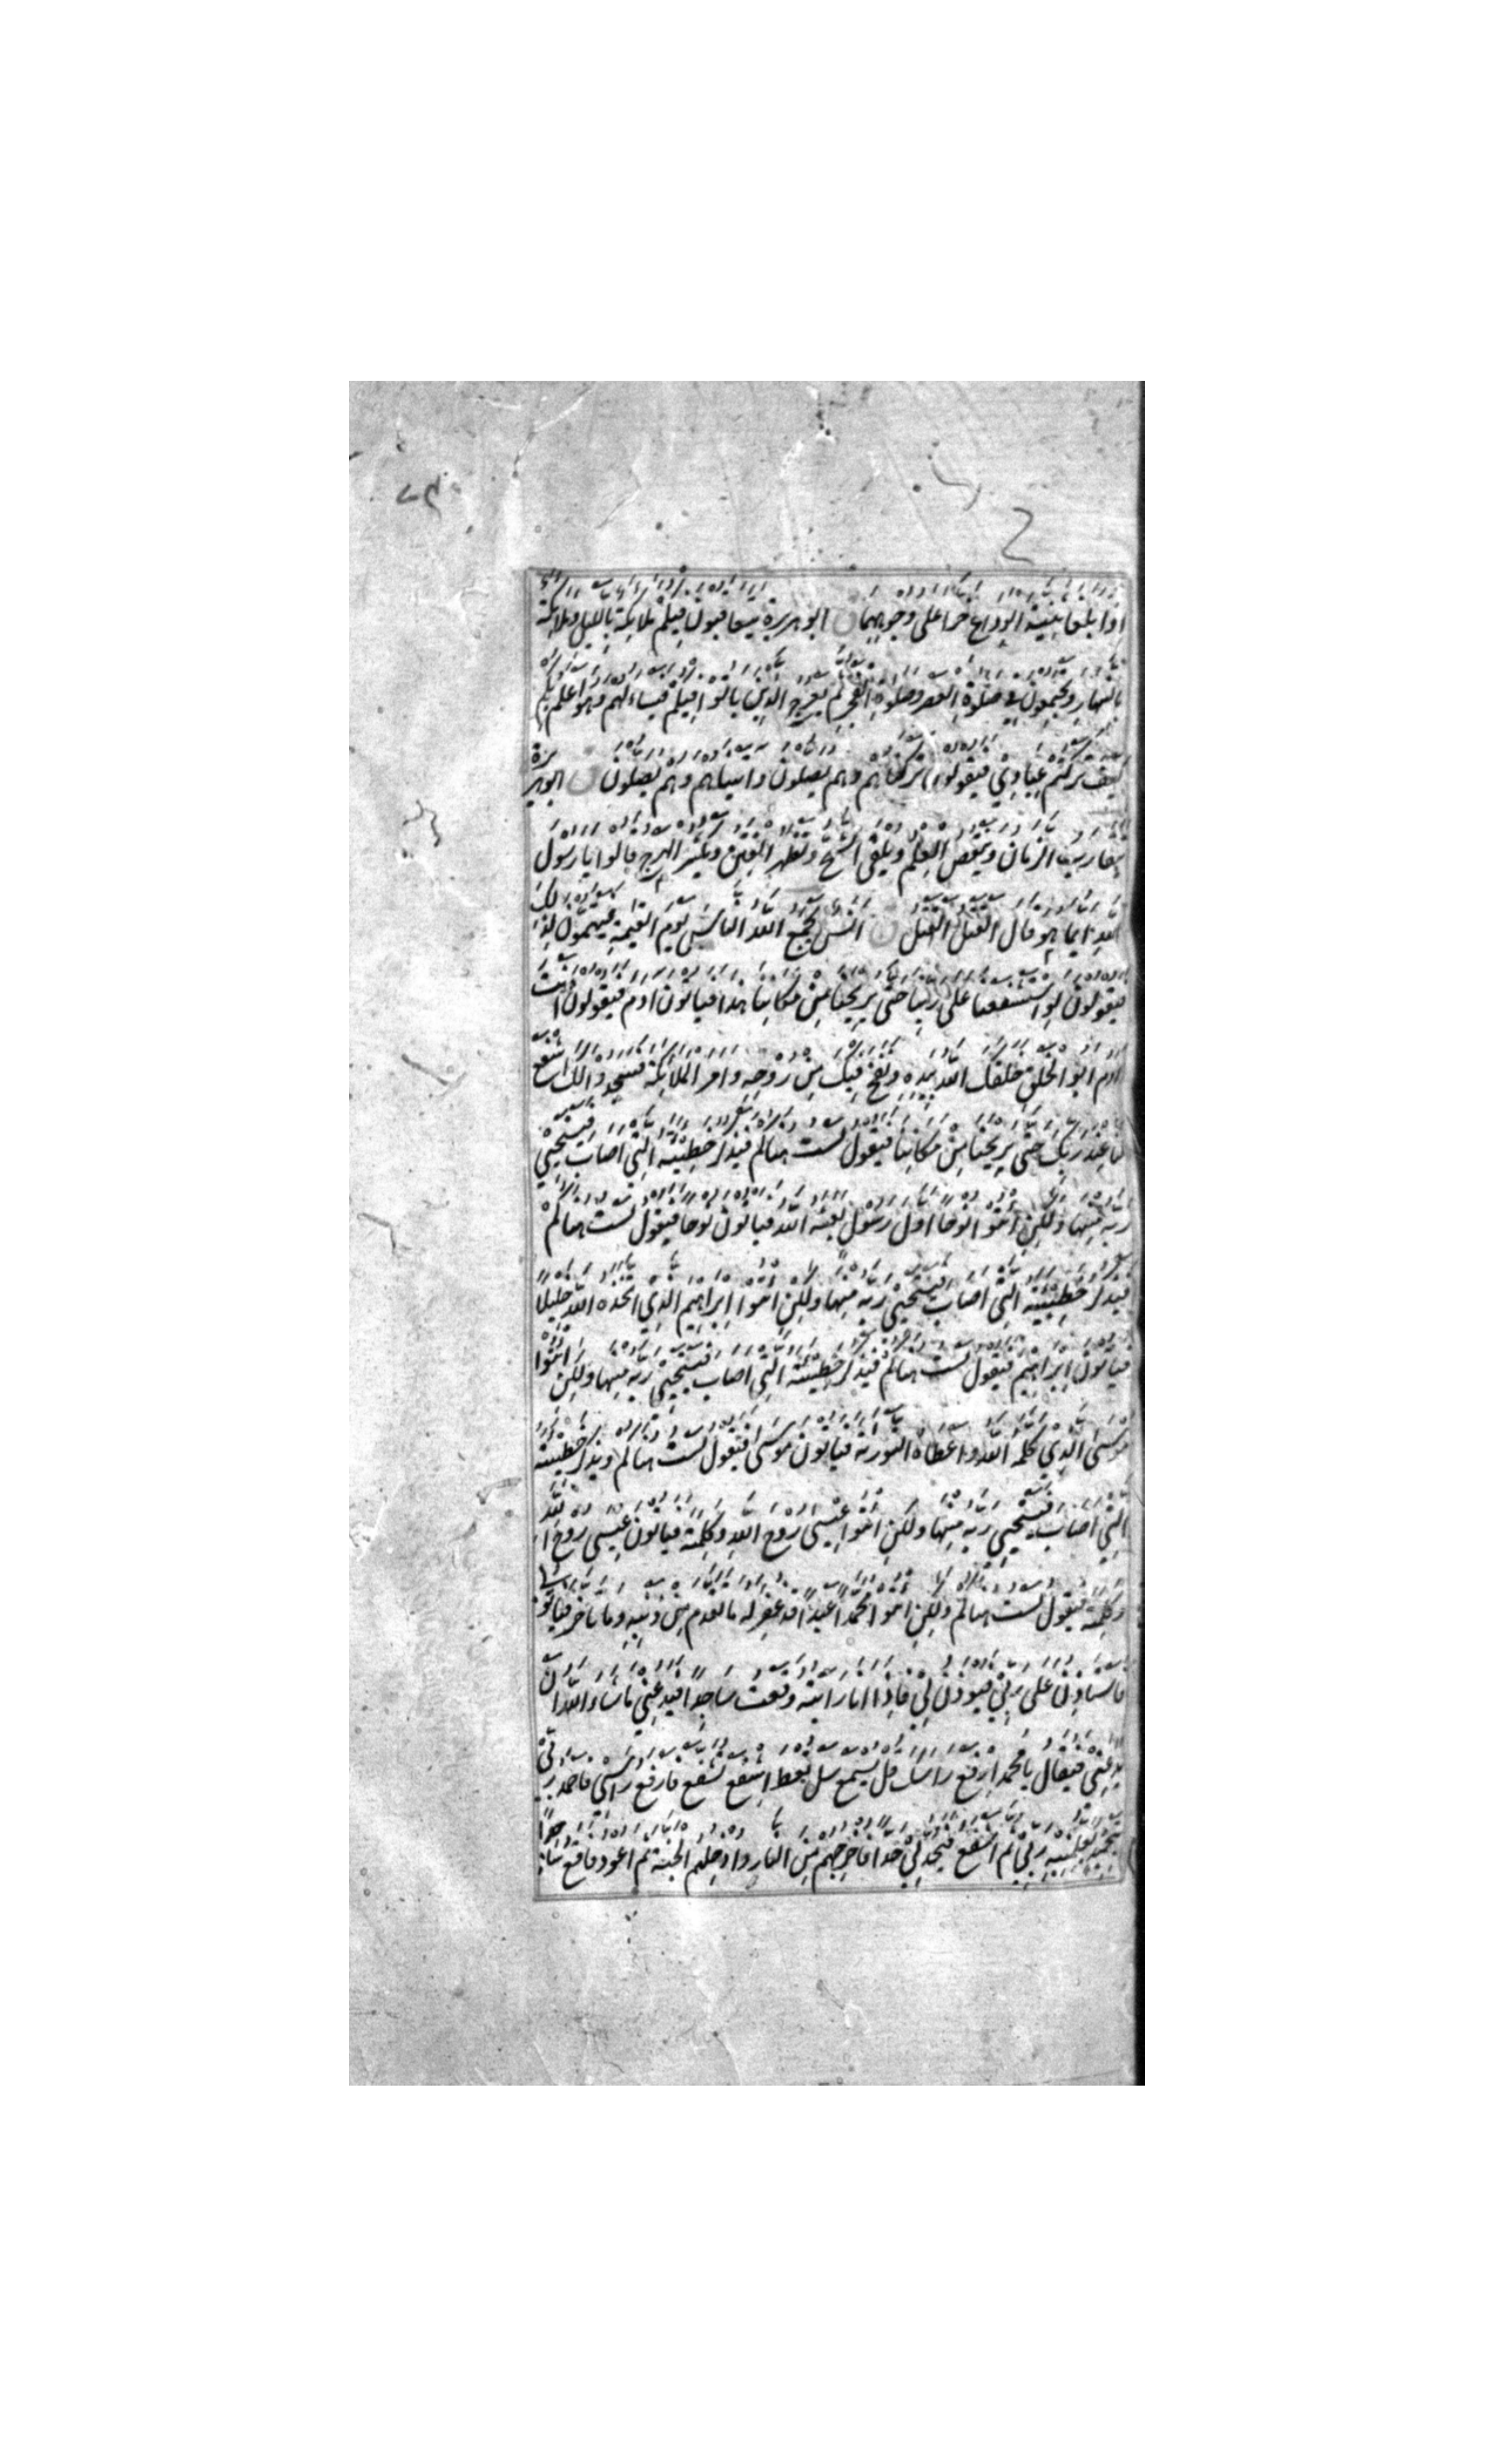 اذا بلغا ثنية الوداع خرا على وجوههما ق ابو هريرة يتعاقبون فيكم ملائكة بالليل وملائكة
بالنهار ويجتمعون في صلوة العصر وصلوة الفجر ثم يعرج الذين باتوا فيكم فيساءلهم وهو اعلم بكم
كيف تركتم عبادي فيقولون تركناهم وهم يصلون واتيناهم وهم يصلون ق ابو هريرة
يتقارب الزمان وينقص العلم ويلقى الشح وتظهر الفتن ويكثر الهرج قالوا يا رسول
الله ايما هو قال القتل القتل ق انس يجمع الله الناس يوم القيمة فيهتمون لذلك
فيقولون لو استشفعنا على ربنا حتى يريحنا من مكاننا هذا فياتون ادم فيقولون انت
ادم ابو الخلق خلقك الله بيده ونفخ فيك من روحه وامر الملائكة فسجدوا لك اشفع
لنا عند ربك حتى يريحنا من مكاننا فيقول لست هناكم فيذكر خطيئته التي اصاب فيستحيي
ربه منها ولكن ائتوا نوحا اول رسول بعثه الله فياتون نوحا فيقول لست هناكم
فيذكر خطيئته التي اصاب فيستحيي ربه منها ولكن ائتوا ابراهيم الذي اتخذه الله خليلا
فياتون ابراهيم فيقول لست هناكم فيذكر خطيئته التي اصاب فيستحيي ربه منها ولكن ائتوا
موسى الذي كلمه الله واعطاه التورية فياتون موسى فيقول لست هناكم ويذكر خطيئته
التي اصاب فيستحيي ربه منها ولكن ائتوا عيسى روح الله وكلمته فياتون عيسى روح الله
وكلمته فيقول لست هناكم ولكن ائتوا محمدا عبدا قد غفر له ما تقدم من ذنبه وما تاخر فياتوني
فاستاذن على ربي فيوذن لي فاذا انا رايته وقعت ساجدا فيدعني ما شاء الله ان
يدعني فيقال يا محمد ارفع راسك قل يسمع سل تعط اشفع تشفع فارفع راسي فاحمد ربي
بتحميد يعلمنيه ربي ثم اشفع فيحد لي حدا فاخرجهم من النار وادخلهم الجنة ثم اعود فاقع ساجدا